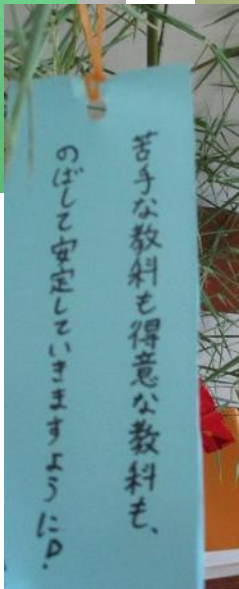 苦手な教科も得意な教科も、
のばして安定していきますように!